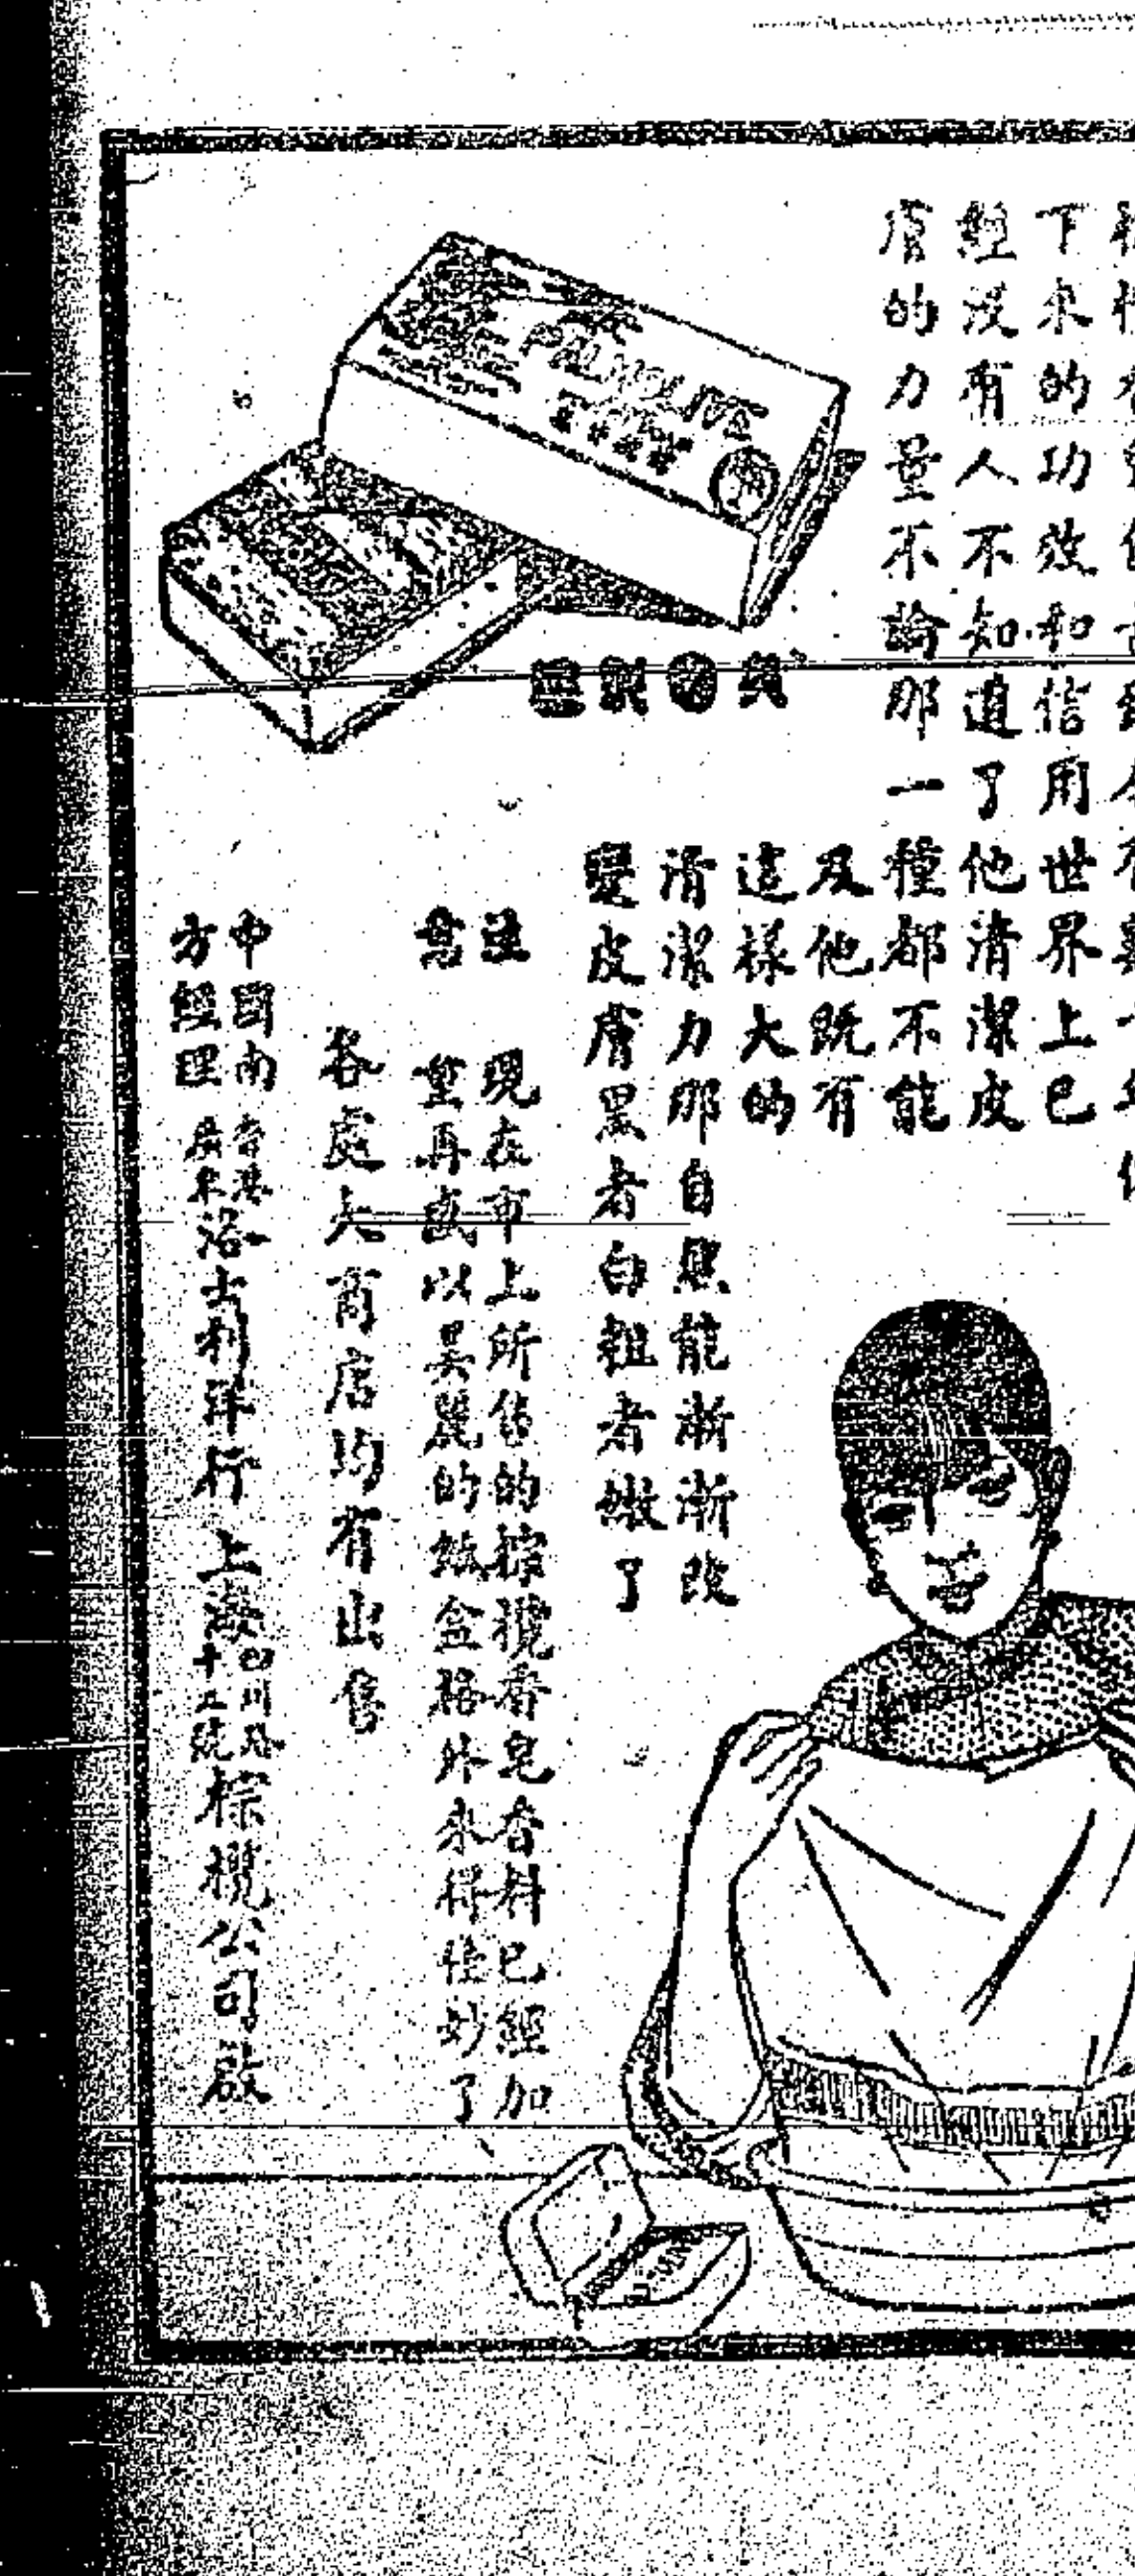 下來的功效和信用世界上已
經沒有人不知道了他清潔皮
膚的力量不論那一種都不能
及他既有
這樣大的
清潔力那自然能漸漸改
變皮膚黑者白粗者嫩了
PALMOLIVE
注意
現在市上所售的棕欖香皂香料已經加
重再盛以美麗的紙盒格外來得佳妙了
各處大商店均有出售
中國南方經理
香港廣東洛士利洋行
上海四川路十五號棕欖公司啟